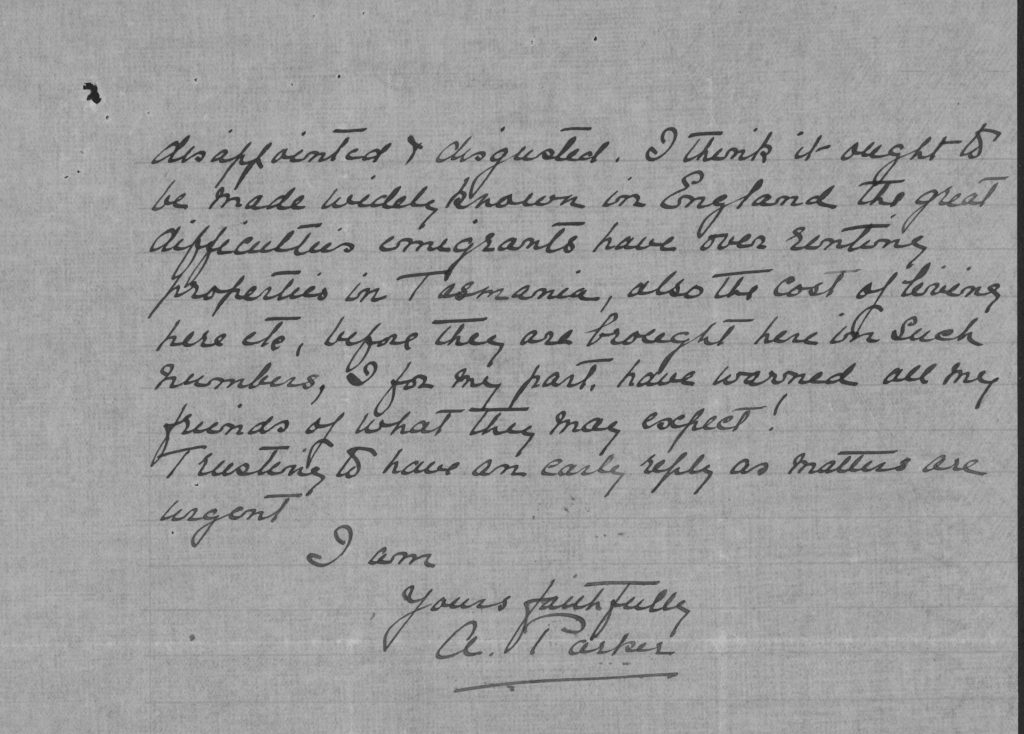 disappointed & disgusted. I think it ought to
be made widely known in England the great
difficulties emigrants have over renting
properties in Tasmania, also the cost of living
here etc, before they are brought here in such
numbers, I for my part, have warned all my
friends of what they may expect!
Trusting to have an early reply as matters are
urgent
I am
Yours faithfully
A. Parker